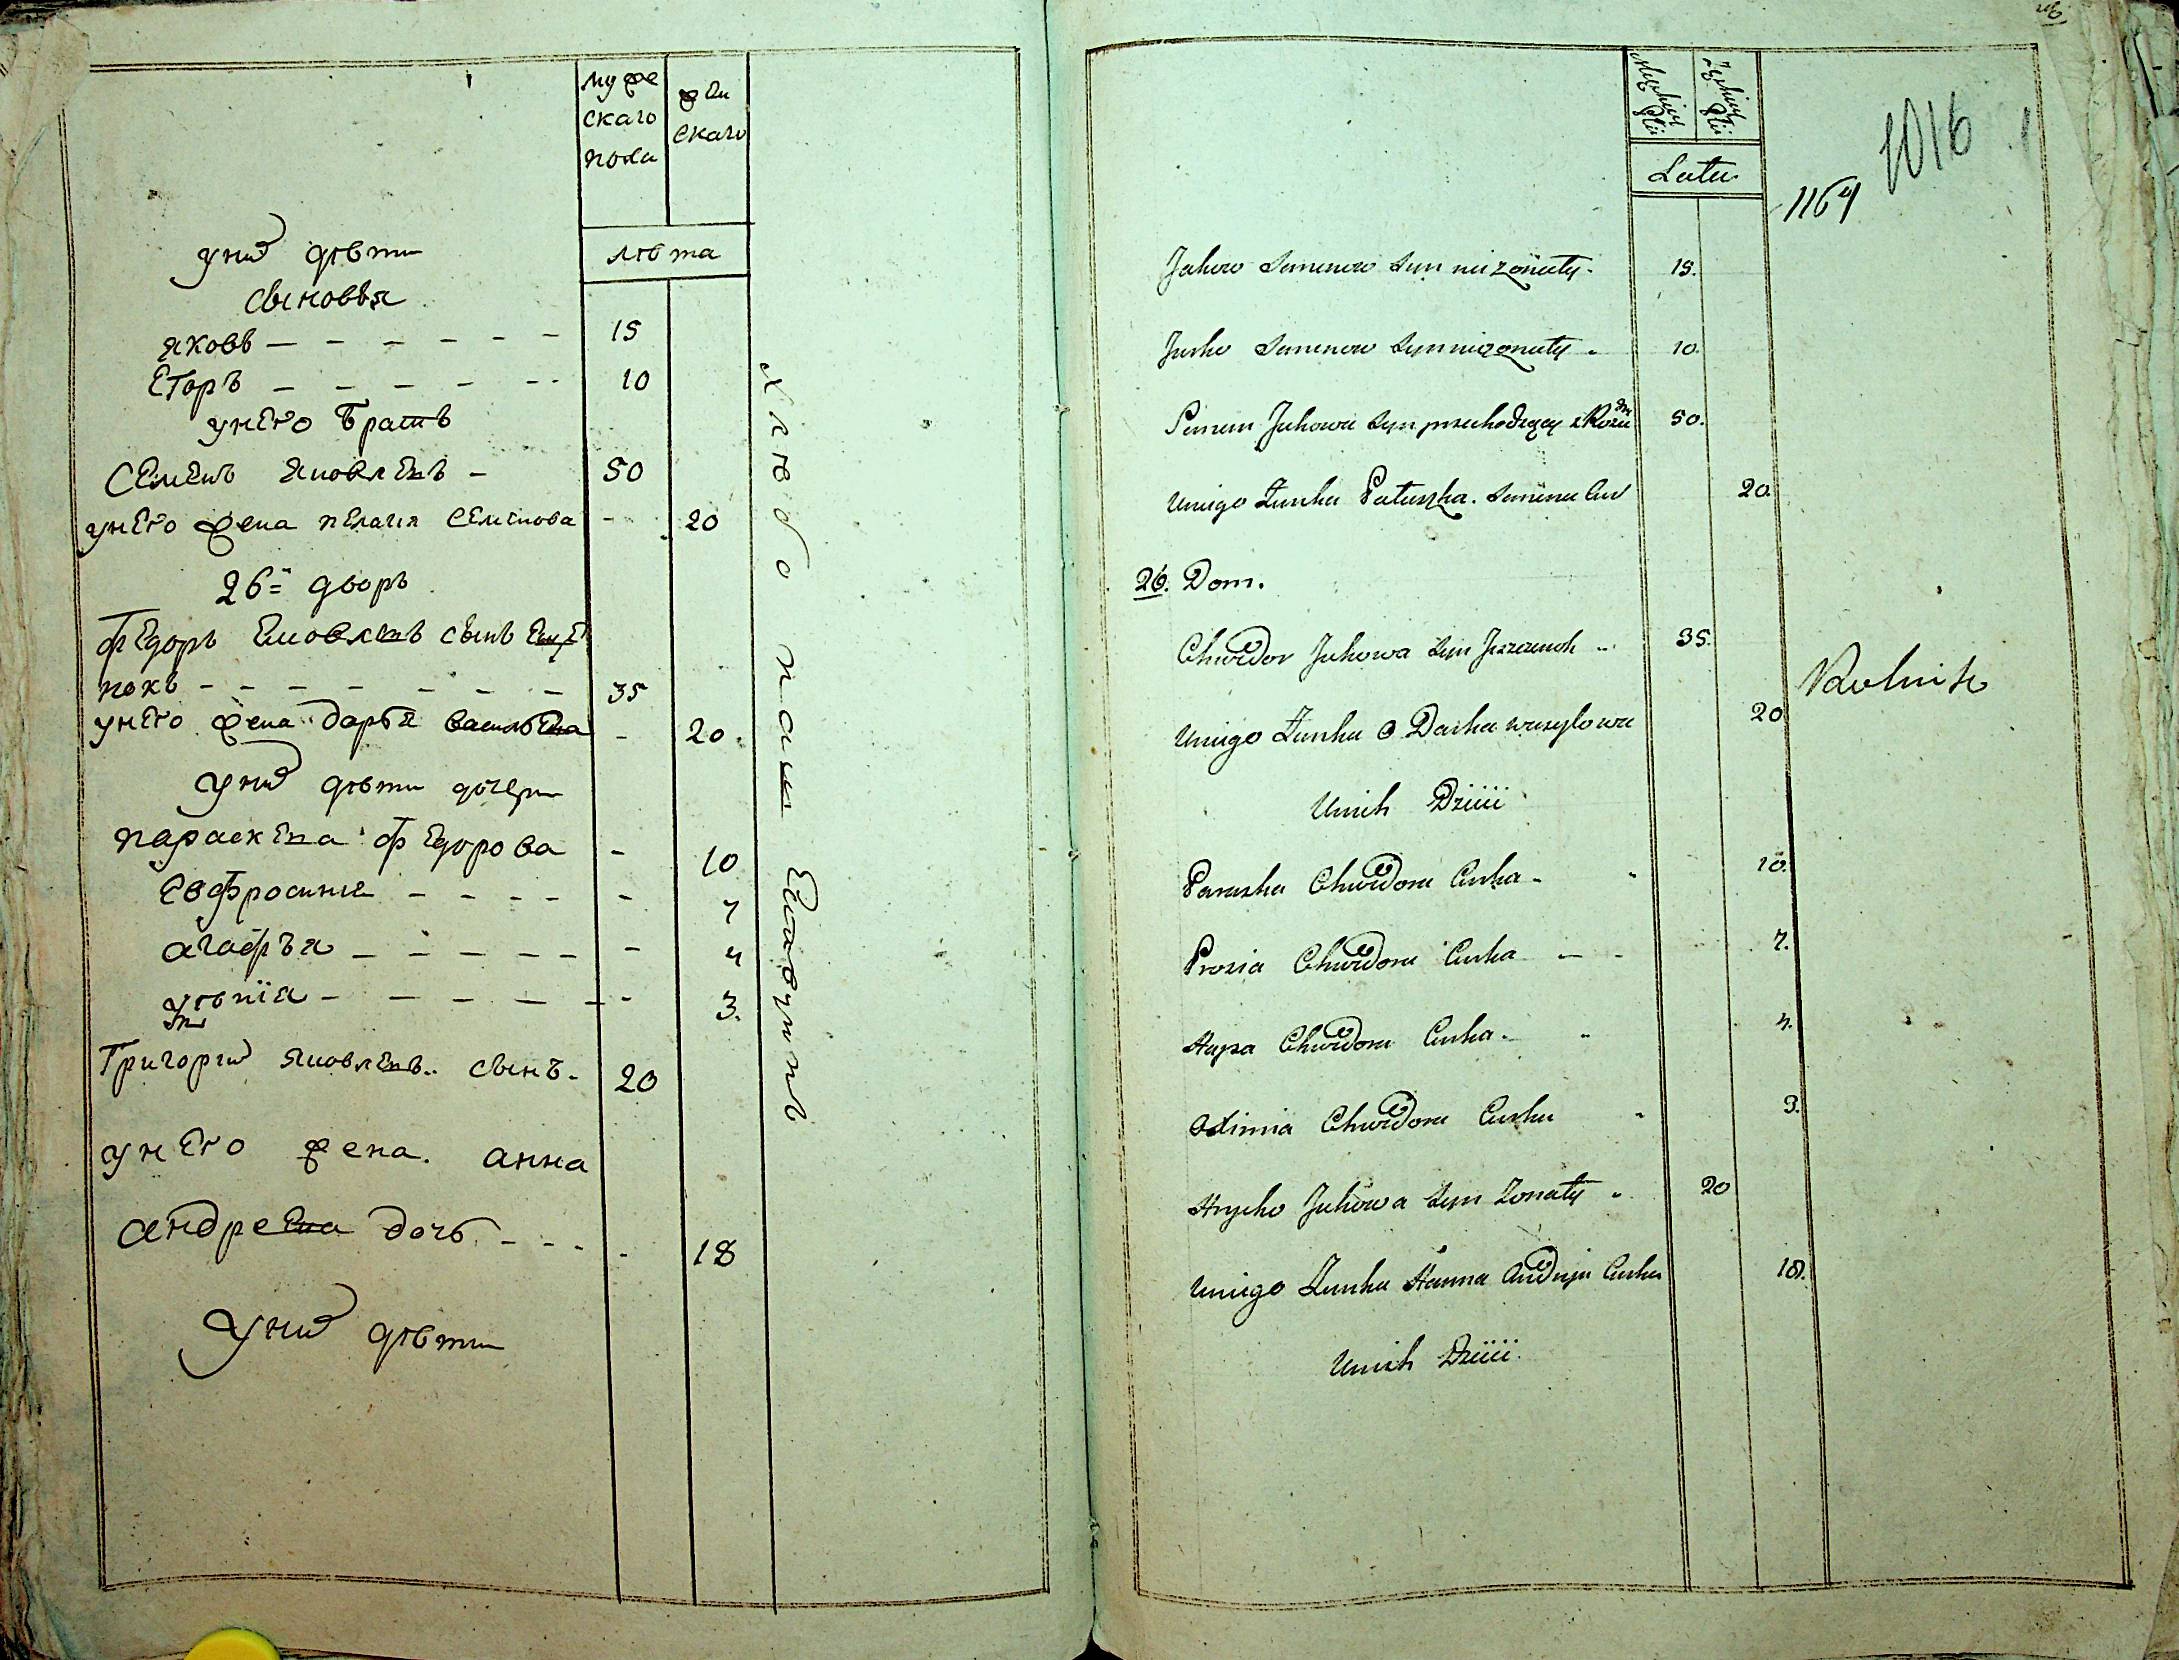 муже
скаго
пола
жен
скаго
лѣта
у них дѣти
сыновья
яковъ - - - - - - 15
Егоръ - - - - - - 10
у него братъ
Семенъ яковлевъ - 50
у него жена пелагия семенова - 20
26й дворъ
федоръ яковлевъ сынъ
35
у него жена дарья васильева - 20.
у них дѣти дочери
параскева федорова - 10
Евфросиния - - - - - 7
агафья - - - - - - 4
3.
Григорий яковлевъ сынъ - 20
у него жена. анна
андреева дочь - - - - 18
у них дѣти
хлебо паш
Męskiey Płci
Żeńskiey Płci
Lata
1016
1164
Jakow Semenow Syn nieżonaty. 15.
Jurko Semenow Syn nieżonaty 10.
Semen Jakowa Syn przechodzący 50.
Uniego Żunka Palaszka. Semena 20.
26. Dom.
Chwedor Jakowa Syn 35.
Rolnik
Uniego Żunka Darka wasylowa 20
Unich Dzieci
Paraska Chwedora Curka - 10.
Prosia Chwedora Curka - - 7.
Hapa Chwedora Curka - 4.
Chwedora Curka 3.
Hrycko Jakowa Syn Żonaty 20
Uniego Żunka Hanna Andreja Curka 18.
Unich Dzieci